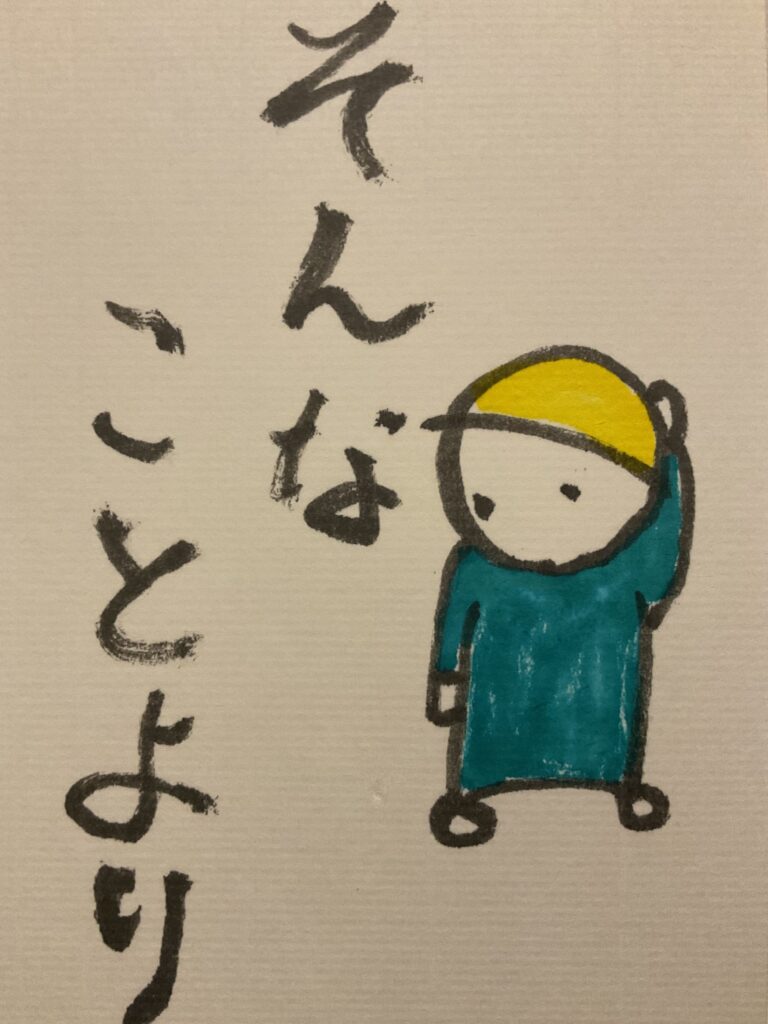 そんな
ことより